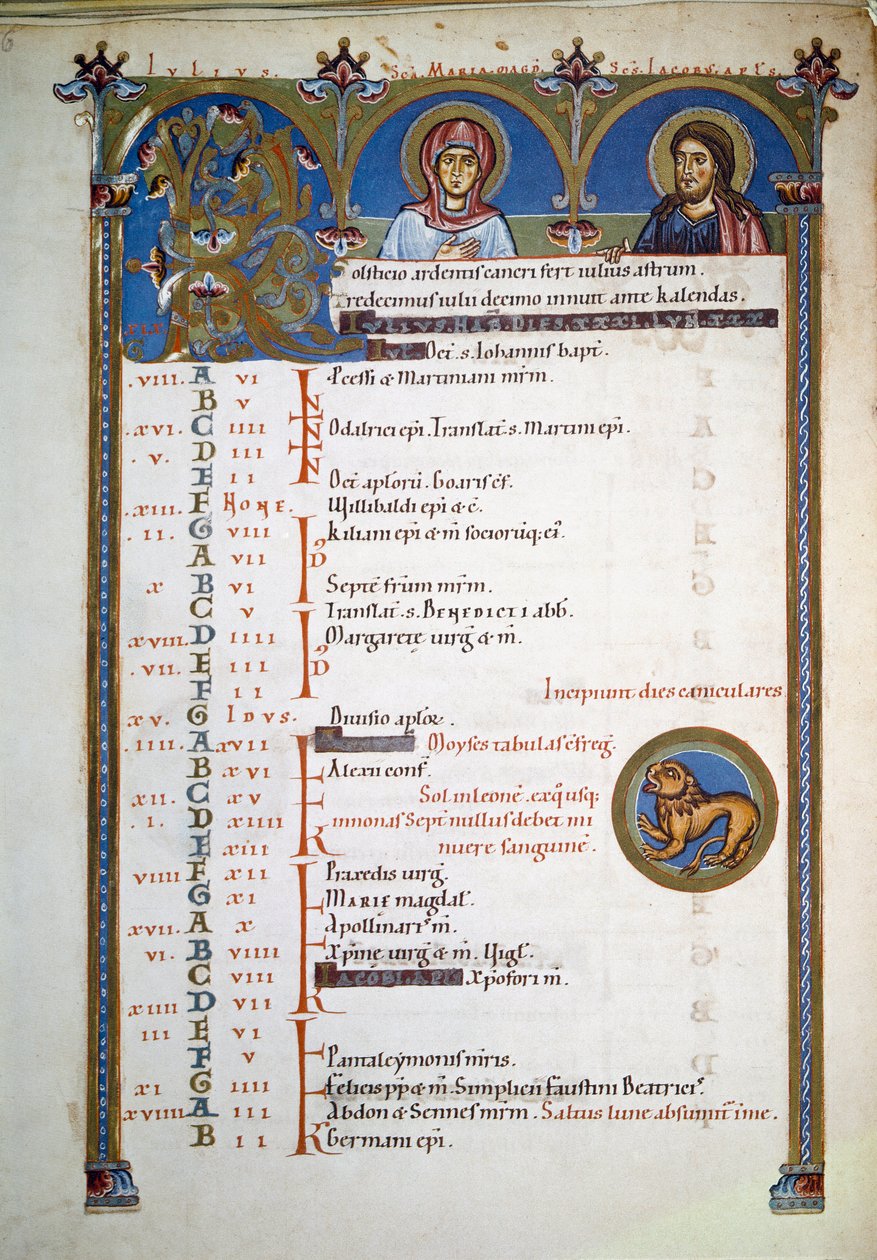 IVLIVS. SCA. MARIA. MAGD̄. SCS. IACOBVS. APLS.
Solsticio ardentis cancri fert iulius astrum.
Tredecimus iulii decimo innuit ante kalendas.
IVLIVS. HAB. DIES. XXXI. LVN. XXX
XIX Oct. s. Iohannis bapt.
.viii. A vi Pcessi & Martiniani mr̄m.
B v
.xvi. C iiii Odalrici ep̄i. Translat̄. s. Martini ep̄i.
.v. D iii
E ii Oct̄ aplorū. Goaris c̄f.
.xiii. F None. Willibaldi ep̄i & c̄.
.ii. G viii Kiliani ep̄i & m̄ sociorūq; ei᾽.
A vii
x B vi Septē fr̄um mr̄m.
C v Translat̄. s. BENEDICTI abb̄.
xviii. D iiii Margaretę virḡ & m̄.
.vii. E iii
F ii Incipiunt dies caniculares
xv. G Idvs. Diuisio aplor̄.
.iiii. A xvii Moyses tabulas c̄freḡ.
B xvi Alexii conf̄.
xii. C xv Sol in leonē. ex q̊ usq;
.i. D xiiii in nonas Sept̄ nullus debet mi
E xiii nuere sanguinē.
viiii F xii Praxedis uirḡ.
G xi MARIĘ magdal̄.
xvii. A x Apollinaris m̄.
vi. B viiii Xp̄ine uirḡ & m̄. Vigl̄.
C viii IACOBI. APLI xp̄ofori m̄.
xiiii D vii
iii E vi
F v Pantaleymonis mr̄is.
xi G iiii Felicis pp̄ & m̄. Simplicii faustini Beatricis.
xviiii. A iii Abdon & Sennes mr̄m. Saltus lune absumit̄
B ii Germani ep̄i.